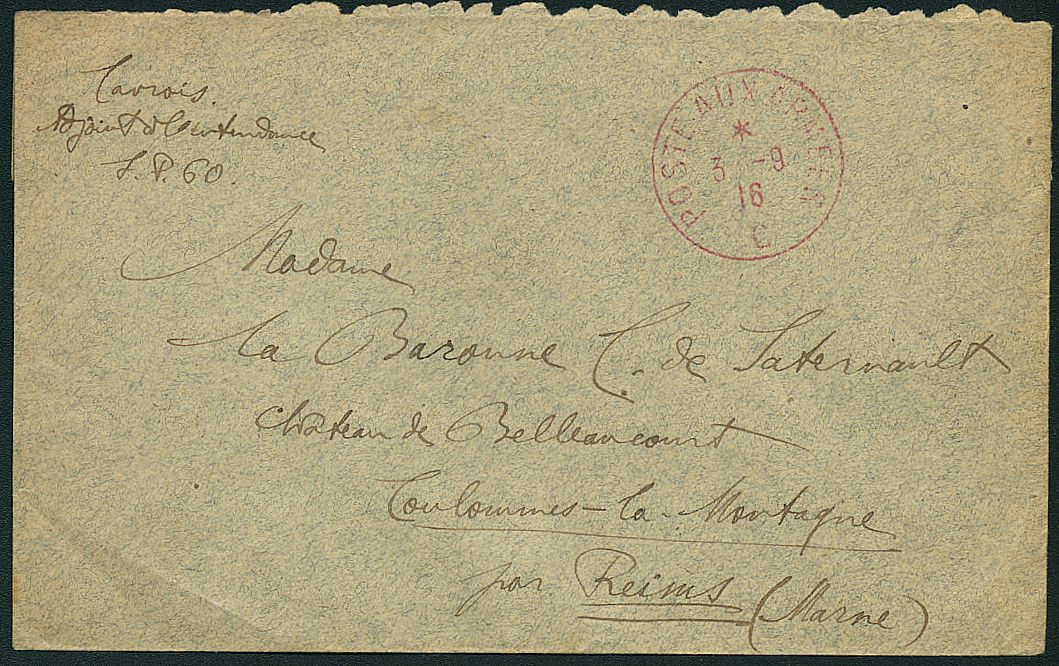 Cavrois.
Adjoint à l'Intendance
S. P. 60.
POSTE AUX ARMEES
*
3 -9
16
C
Madame
La Baronne C. de Saternault
château de Belleaucourt
Coulommes-la-Montagne
par Reims (Marne)